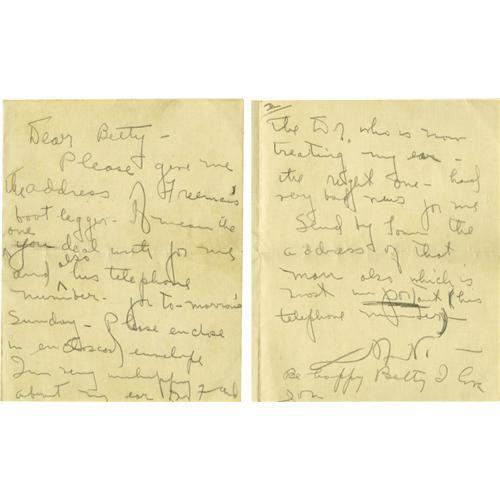 Dear Betty -
Please give me
the address Freeman's
boot legger. I mean the
one
you deal with for me
and also his telephone
number. for to-morrow's
Sunday - Please enclose
in enclosed envelope
I'm very unhappy
about my ear
2
the Dr. who is now
treating my ear -
the right one - had
very bad news for me
Send by Tom the
address of that
man also which is
most important his
telephone number
Be happy Betty I love
you